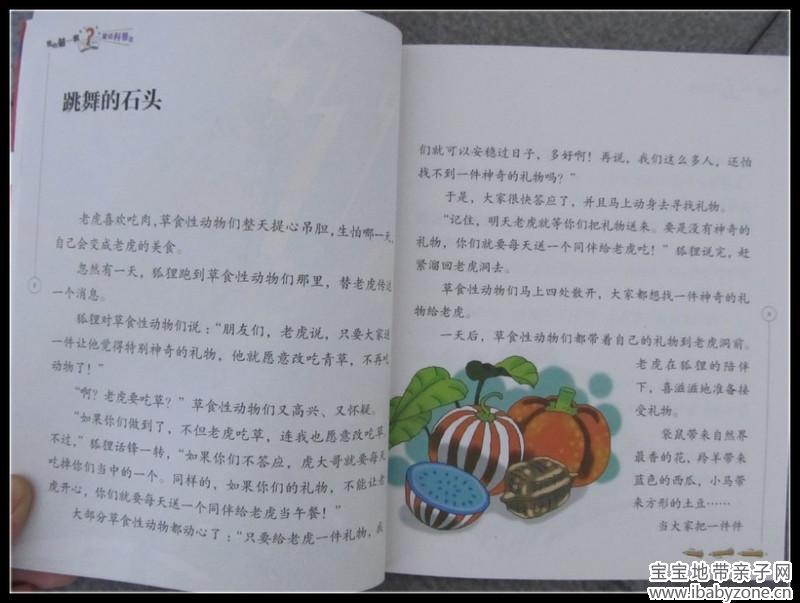 我的第一套
童话科普书
跳舞的石头
老虎喜欢吃肉，草食性动物们整天提心吊胆，生怕哪一天，
自己会变成老虎的美食。
忽然有一天，狐狸跑到草食性动物们那里，替老虎传达
一个消息。
狐狸对草食性动物们说：“朋友们，老虎说，只要大家送
一件让他觉得特别神奇的礼物，他就愿意改吃青草，不再吃
动物了！”
“啊？老虎要吃草？”草食性动物们又高兴、又怀疑。
“如果你们做到了，不但老虎吃草，连我也愿意改吃草。
不过，”狐狸话锋一转，“如果你们不答应，虎大哥就要每天
吃掉你们当中的一个。同样的，如果你们的礼物，不能让老
虎开心，你们就要每天送一个同伴给老虎当午餐！”
大部分草食性动物都动心了：“只要给老虎一件礼物，我
们就可以安稳过日子，多好啊！再说，我们这么多人，还怕
找不到一件神奇的礼物吗？”
于是，大家很快答应了，并且马上动身去寻找礼物。
“记住，明天老虎就等你们把礼物送来。要是没有神奇的
礼物，你们就要每天送一个同伴给老虎吃！”狐狸说完，赶
紧溜回老虎洞去。
草食性动物们马上四处散开，大家都想找一件神奇的礼
物给老虎。
一天后，草食性动物们都带着自己的礼物到老虎洞前。
老虎在狐狸的陪伴
下，喜滋滋地准备接
受礼物。
袋鼠带来自然界
最香的花，羚羊带来
蓝色的西瓜，小马带
来方形的土豆……
当大家把一件件
宝宝地带亲子网
www.ibabyzone.cn